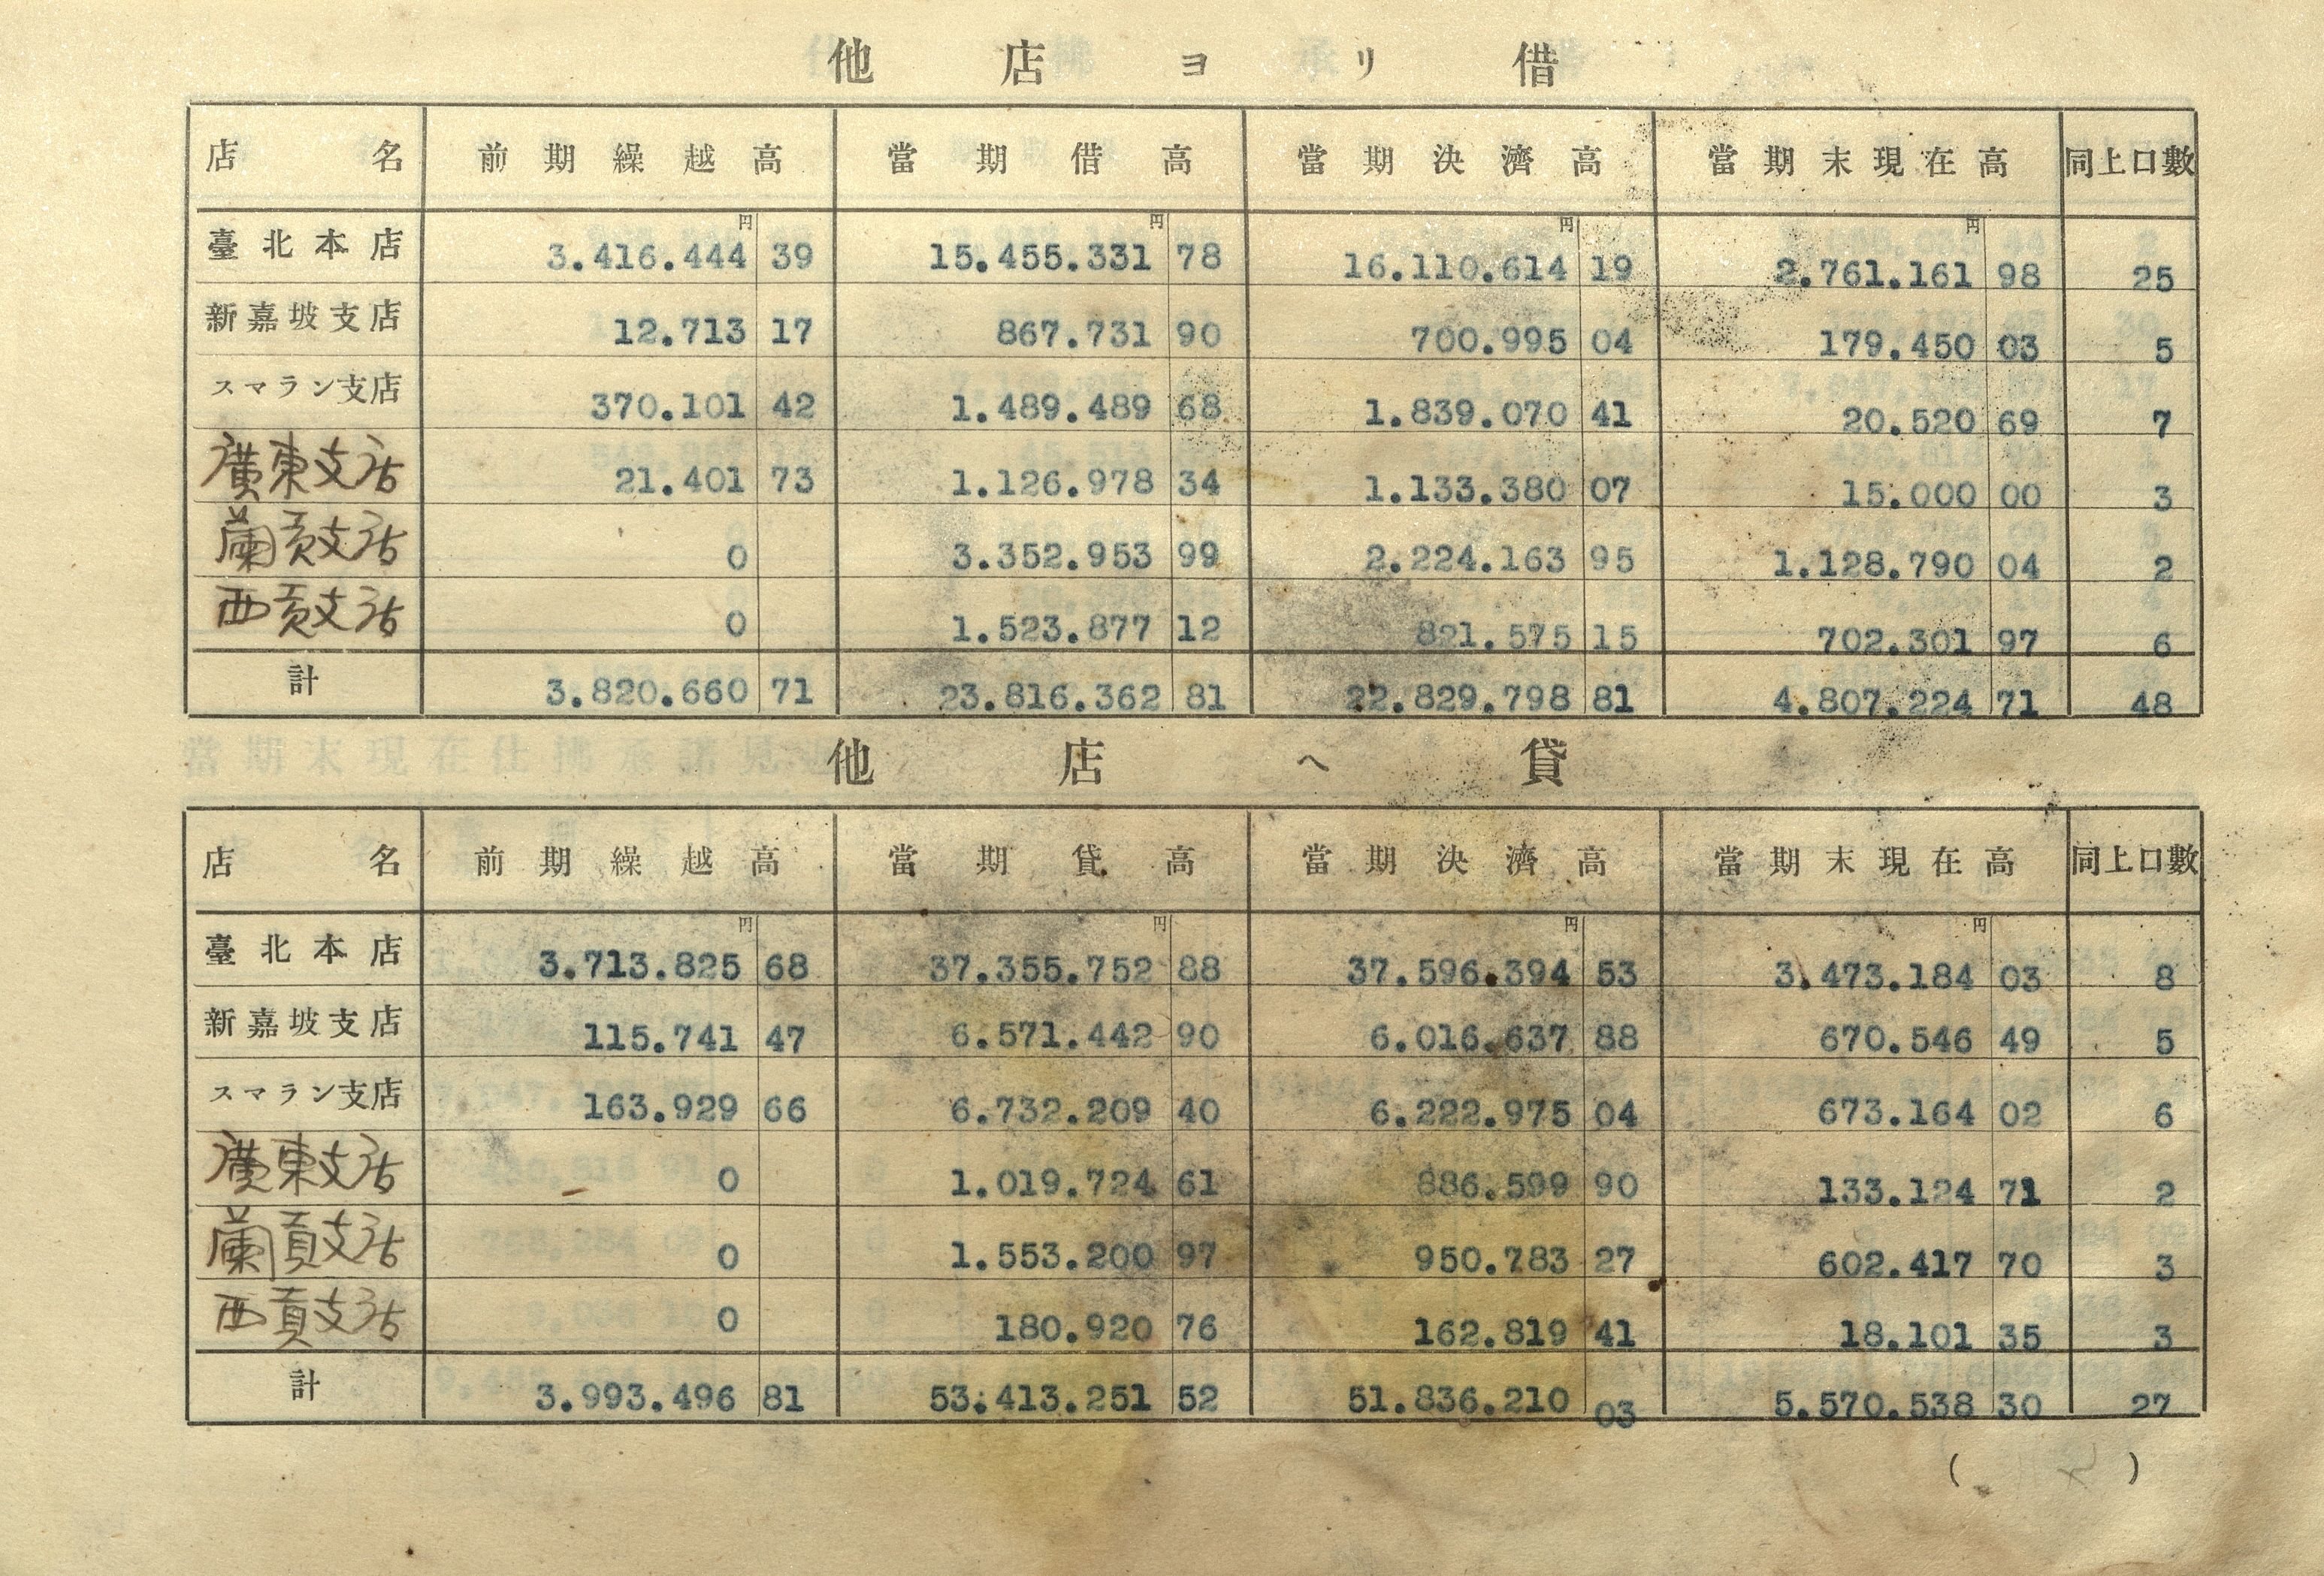 他店ヨリ借
店名 前期繰越高 當期借高 當期決濟高 當期末現在高 同上口數
円 円 円 円
臺北本店 3.416.444 39 15.455.331 78 16.110.614 19 2.761.161 98 25
新嘉坡支店 12.713 17 867.731 90 700.995 04 179.450 03 5
スマラン支店 370.101 42 1.489.489 68 1.839.070 41 20.520 69 7
廣東支店 21.401 73 1.126.978 34 1.133.380 07 15.000 00 3
蘭貢支店 0 3.352.953 99 2.224.163 95 1.128.790 04 2
西貢支店 0 1.523.877 12 821.575 15 702.301 97 6
計 3.820.660 71 23.816.362 81 22.829.798 81 4.807.224 71 48
他店ヘ貸
店名 前期繰越高 當期貸高 當期決濟高 當期末現在高 同上口數
円 円 円 円
臺北本店 3.713.825 68 37.355.752 88 37.596.394 53 3.473.184 03 8
新嘉坡支店 115.741 47 6.571.442 90 6.016.637 88 670.546 49 5
スマラン支店 163.929 66 6.732.209 40 6.222.975 04 673.164 02 6
廣東支店 0 1.019.724 61 886.599 90 133.124 71 2
蘭貢支店 0 1.553.200 97 950.783 27 602.417 70 3
西貢支店 0 180.920 76 162.819 41 18.101 35 3
計 3.993.496 81 53.413.251 52 51.836.210 03 5.570.538 30 27
( )